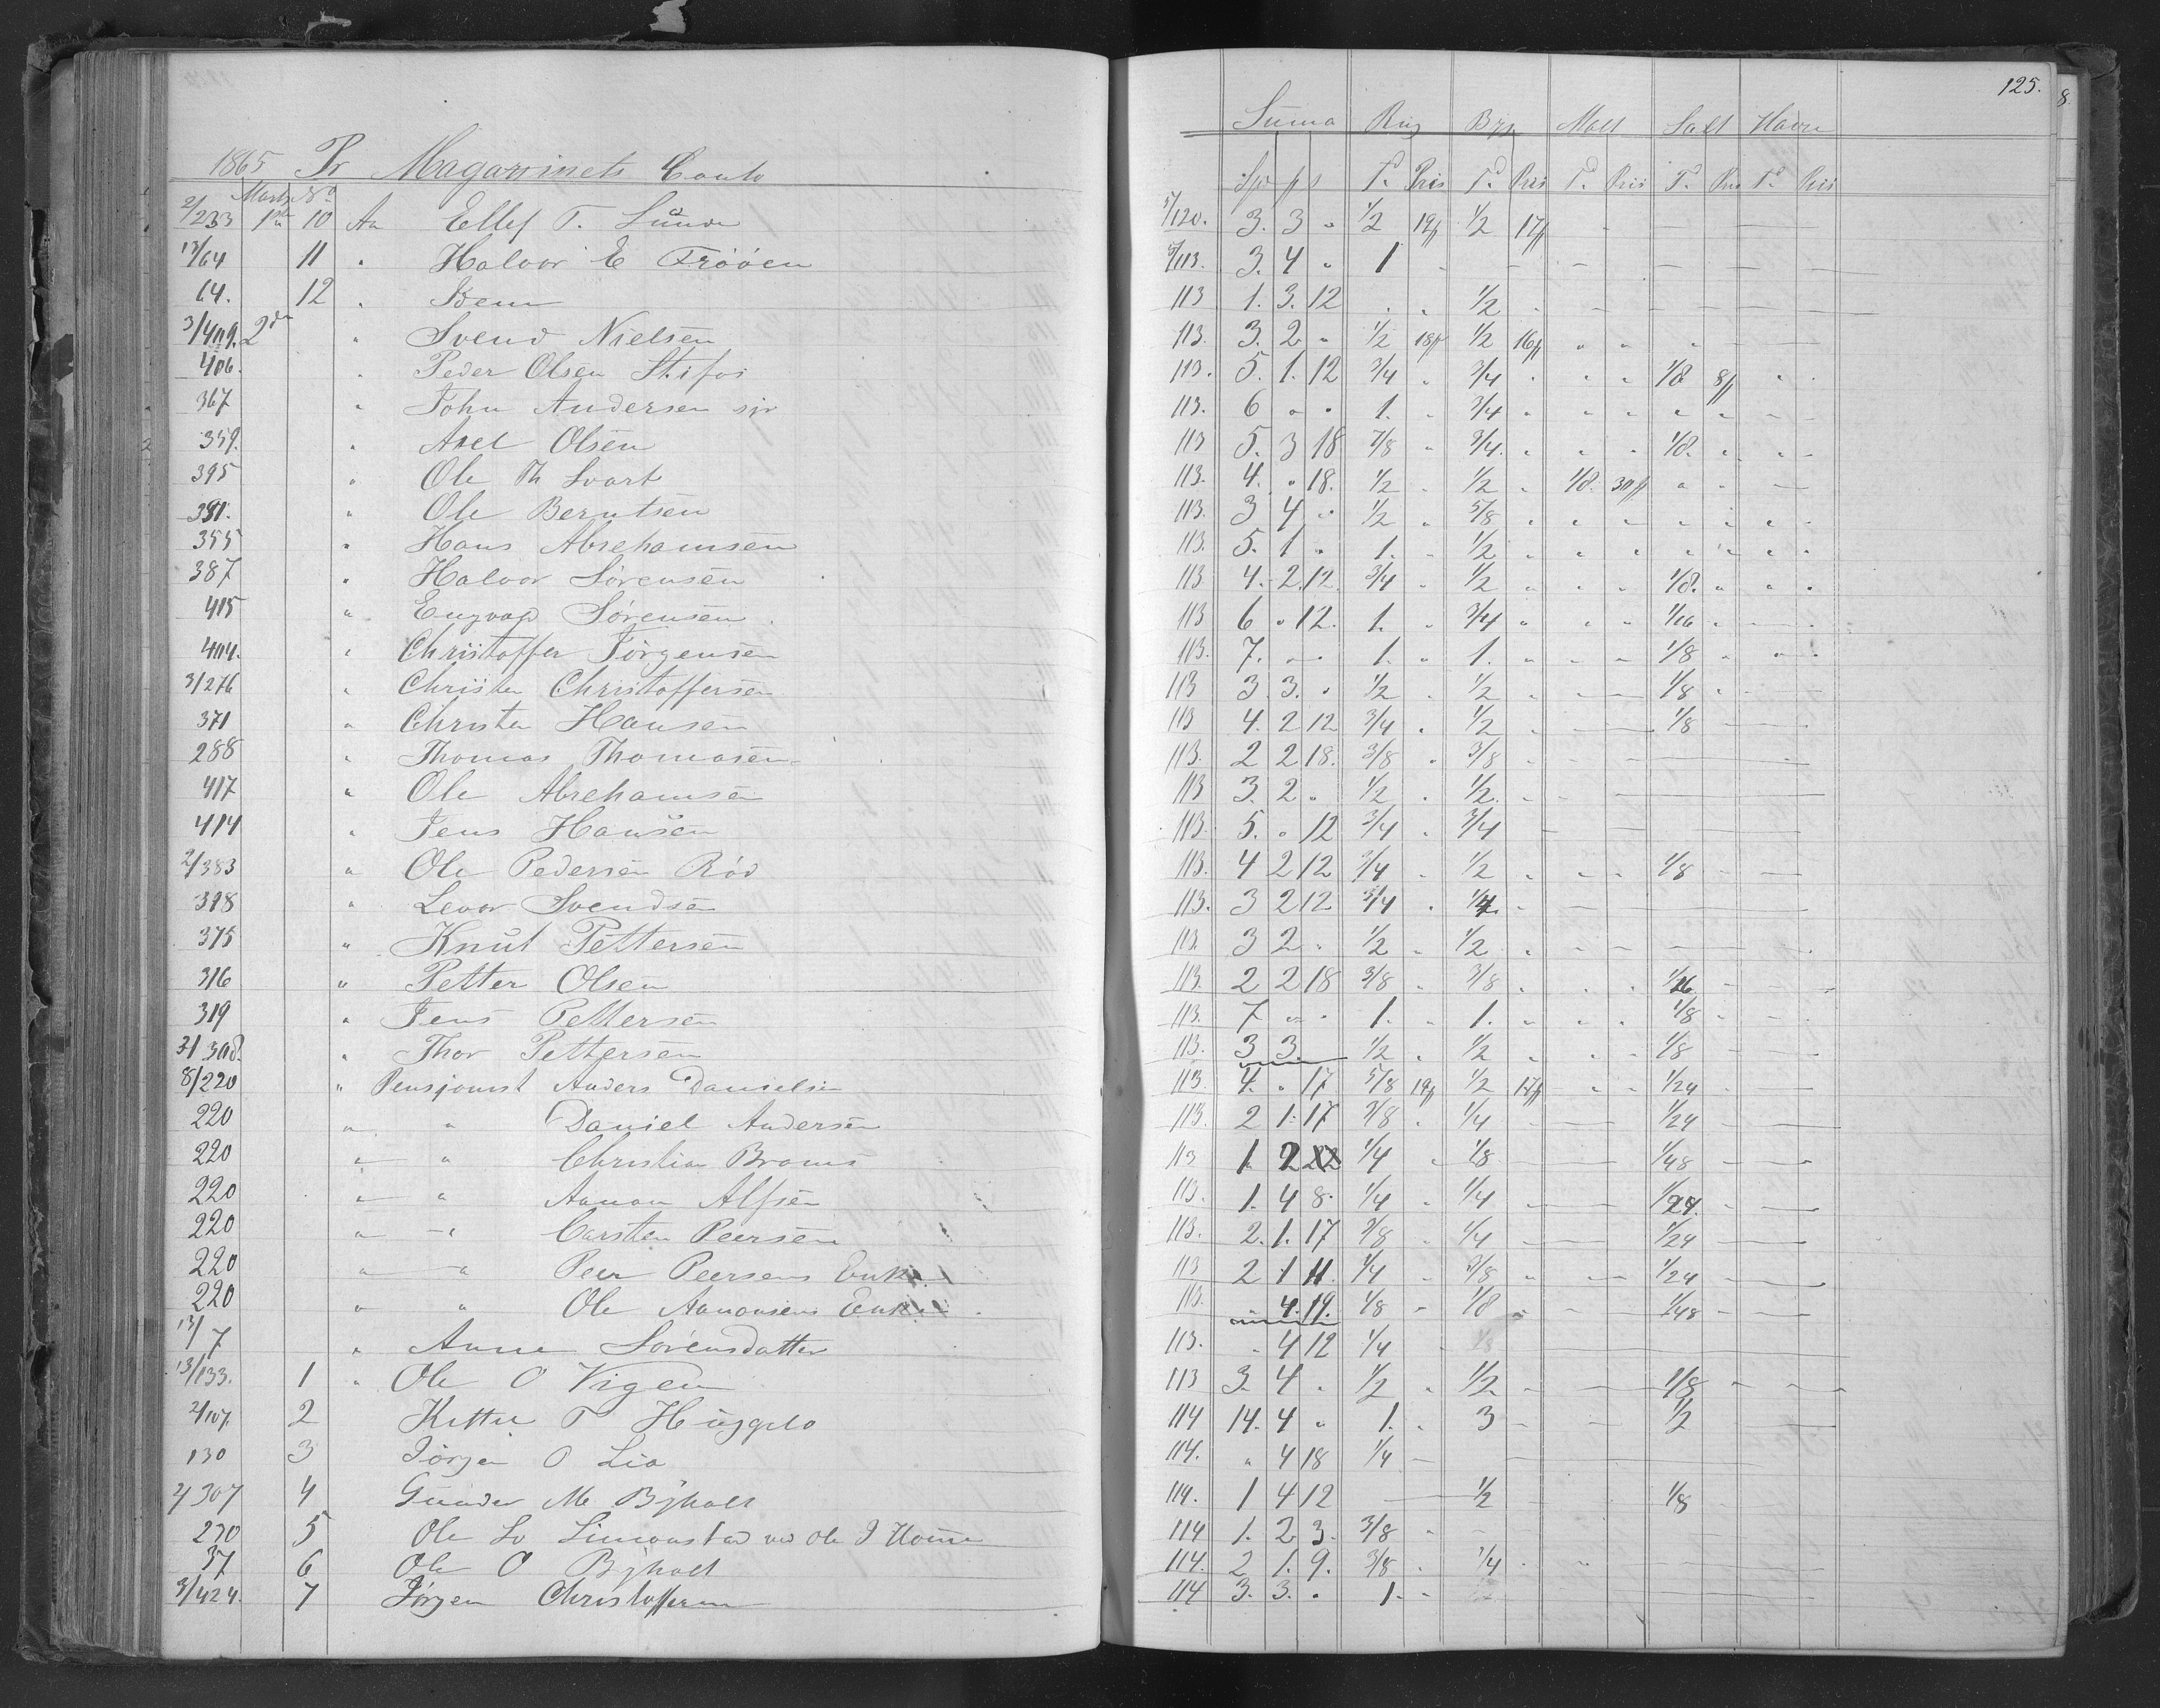 125.
Suma Rug Byg Malt Salt Havre
1865 Pr Magazinets Conto
Spd ß s Td Pris Td Pris Td Pris Td Pris Td Pris
Marts No
2/233 1ste 10 An Ellef T. Lunde 5/120. 3. 3 " 1/2 19ß 1/2 17ß
13/64 11 " Halvor E Trööen 5/113. 3. 4 " 1
64. 12 " Idem 113 1. 3. 12 1/2
3/409. 2den " Svend Nielsen 113. 3. 2 " 1/2 18ß 1/2 16ß
406. " Peder Olsen Stifos 113. 5. 1. 12 3/4 " 3/4 " " " 1/8 8ß
367 " John Andersen sjr 113. 6 " " 1. 3/4
359. " Axel Olsen 113 5. 3 18 7/8 " 3/4 1/8.
395 " Ole Th Svart 113. 4. " 18. 1/2 1/2 1/8. 30ß
391. " Ole Berntsen 113. 3 4 " 1/2 " 5/8
355 " Hans Abrehamsen 113. 5. 1 " 1. 1/2
387 " Halvor Sörensen 113 4. 2. 12. 3/4 " 1/2 1/8.
415 " Engvap Sörensen 113 6 " 12. 1. 3/4 1/16
404. " Christoffer Jörgensen 113. 7. " " 1. " 1. 1/8
3/276 " Christen Christoffersen 113 3. 3. " 1/2 1/2 1/8
371 " Christen Hansen 113 4. 2 12 3/4 1/2 1/8
288 " Thomas Thomasen 113. 2 2 18. 3/8 3/8
417 " Ole Abrehamsen 113 3. 2 " 1/2 1/2
414 " Jens Hansen 113. 5. " 12 3/4 3/4
2/383 " Ole Pedersen Röd 113. 4 2 12 3/4 1/2 1/8
398 " Levor Svendsen 113. 3 2 12 3/4 1/4
375 " Knut Pettersen 113. 3 2 " 1/2 1/2
316 " Petter Olsen 113. 2 2 18 3/8 3/8 1/16
319 " Jens Pettersen 113. 7 " " 1. 1. 1/8
3/308. " Thor Pettersen 113. 3 3. 1/2 1/2 1/8
8/220 " Pensjonist Anders Danielsen 113. 4. " 17 5/8 19ß 1/2 17ß 1/24
220 " " Daniel Andersen 113. 2 1. 17 3/8 1/4 1/24
220 " " Christian Broms 113 1 2 22 1/4 1/8 1/48
220 " " Aanon Alfsen 113. 1. 4 8. 1/4 1/4 1/24.
220 " " Carsten Peersen 113. 2. 1. 17 3/8 1/4 1/24
220 " " Peer Peersens Enke 113 2 1 11. 1/4 3/8 1/24
220 " " Ole Aanonsens Enke 113. " 4. 19. 1/8 1/8 1/48
13/7 " Anne Sörensdatter 113. " 4 12 1/4
13/133. 1 " Ole O Vigen 113 3. 4 " 1/2 1/2 1/8
2/107. 2 Kettel T Huggelo 114 14. 4 " 1. 3 1/2
130 3 Jörgen O Lia 114. " 4 18 1/4
2/307 4 Gunder M Bÿholt 114. 1 4 12 1/2 1/8
270 5 Ole Lo Simonstad ved Ole J 114 1. 2 3. 3/8
37 6 Ole O Bÿholt 114. 2 1. 9. 3/8 1/4
3/424. 7 Jörgen Christoffersen 114 3. 3. " 1.